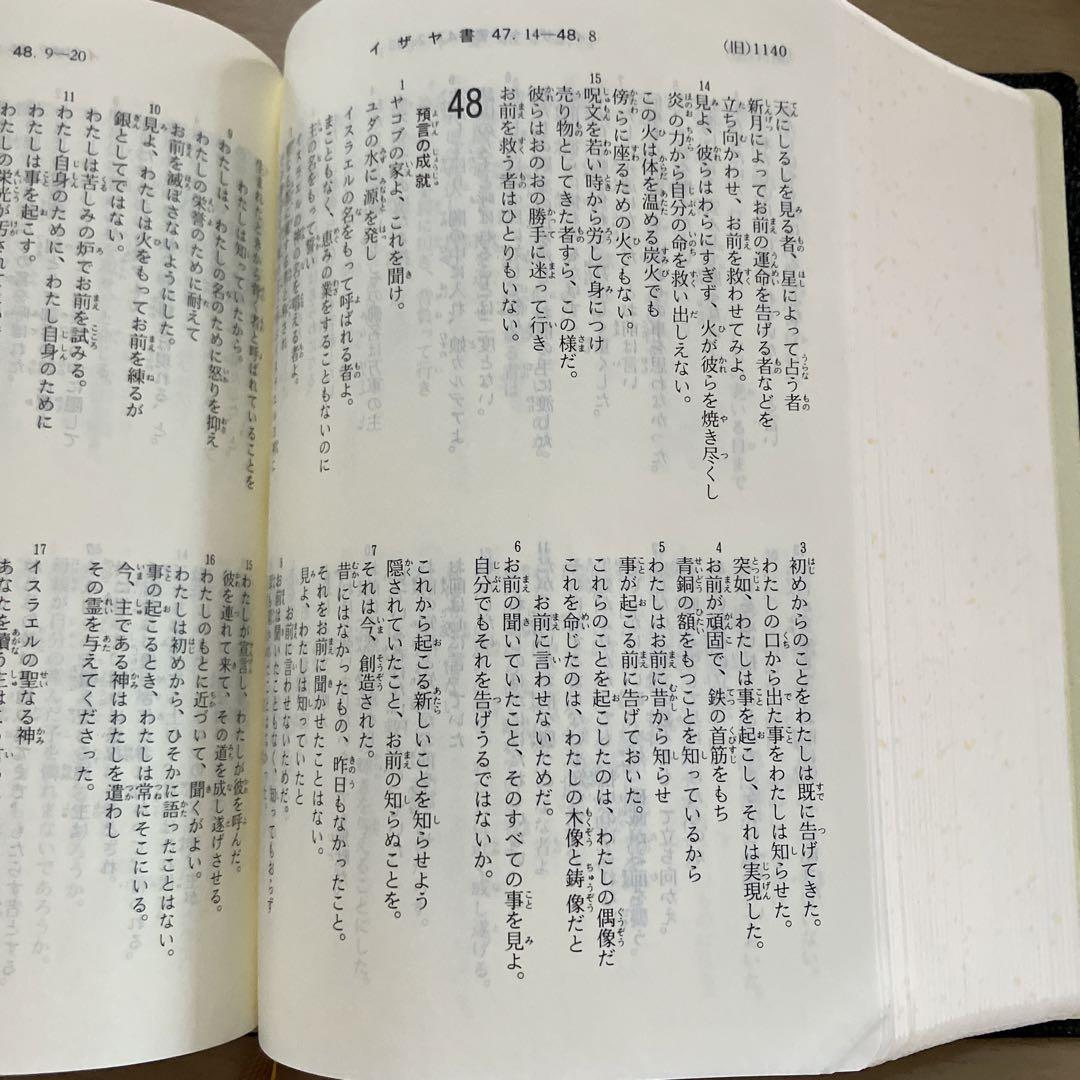 イザヤ書 47.14―48.8
(旧)1140
天にしるしを見る者、星によって占う者
新月によってお前の運命を告げる者などを
立ち向かわせ、お前を救わせてみよ。
14 見よ、彼らはわらにすぎず、火が彼らを焼き尽くし
炎の力から自分の命を救い出しえない。
この火は体を温める炭火でも
傍らに座るための火でもない。
15 呪文を若い時から労して身につけ
売り物としてきた者すら、この様だ。
彼らはおのおの勝手に迷って行き
お前を救う者はひとりもいない。
48
預言の成就
1 ヤコブの家よ、これを聞け。
ユダの水に源を発し
イスラエルの名をもって呼ばれる者よ。
まこともなく、恵みの業をすることもないのに
主の名をもって誓い
イスラエルの神の名を唱える者よ。
3 初めからのことをわたしは既に告げてきた。
わたしの口から出た事をわたしは知らせた。
突如、わたしは事を起こし、それは実現した。
4 お前が頑固で、鉄の首筋をもち
青銅の額をもつことを知っているから
5 わたしはお前に昔から知らせ
事が起こる前に告げておいた。
これらのことを起こしたのは、わたしの偶像だ
これを命じたのは、わたしの木像と鋳像だと
お前に言わせないためだ。
6 お前の聞いていたこと、そのすべての事を見よ。
自分でもそれを告げうるではないか。
これから起こる新しいことを知らせよう
隠されていたこと、お前の知らぬことを。
7 それは今、創造された。
昔にはなかったもの、昨日もなかったこと。
それをお前に聞かせたことはない。
見よ、わたしは知っていたと
お前に言わせないためだ。
8 お前は聞いたこともなく、知ってもおらず
48.9―20
生まれたときから背く者と呼ばれていることを
わたしは知っていたから。
9 わたしは、わたしの名のために怒りを抑え
わたしの栄誉のために耐えて
お前を滅ぼさないようにした。
10 見よ、わたしは火をもってお前を練るが
銀としてではない。
わたしは苦しみの炉でお前を試みる。
11 わたし自身のために、わたし自身のために
わたしは事を起こす。
わたしの栄光が汚されて
15 わたしが宣言し、わたしが彼を呼んだ。
彼を連れて来て、その道を成し遂げさせる。
16 わたしのもとに近づいて、聞くがよい。
わたしは初めから、ひそかに語ったことはない。
事の起こるとき、わたしは常にそこにいる。
今、主である神はわたしを遣わし
その霊を与えてくださった。
17 イスラエルの聖なる神
あなたを贖う主は